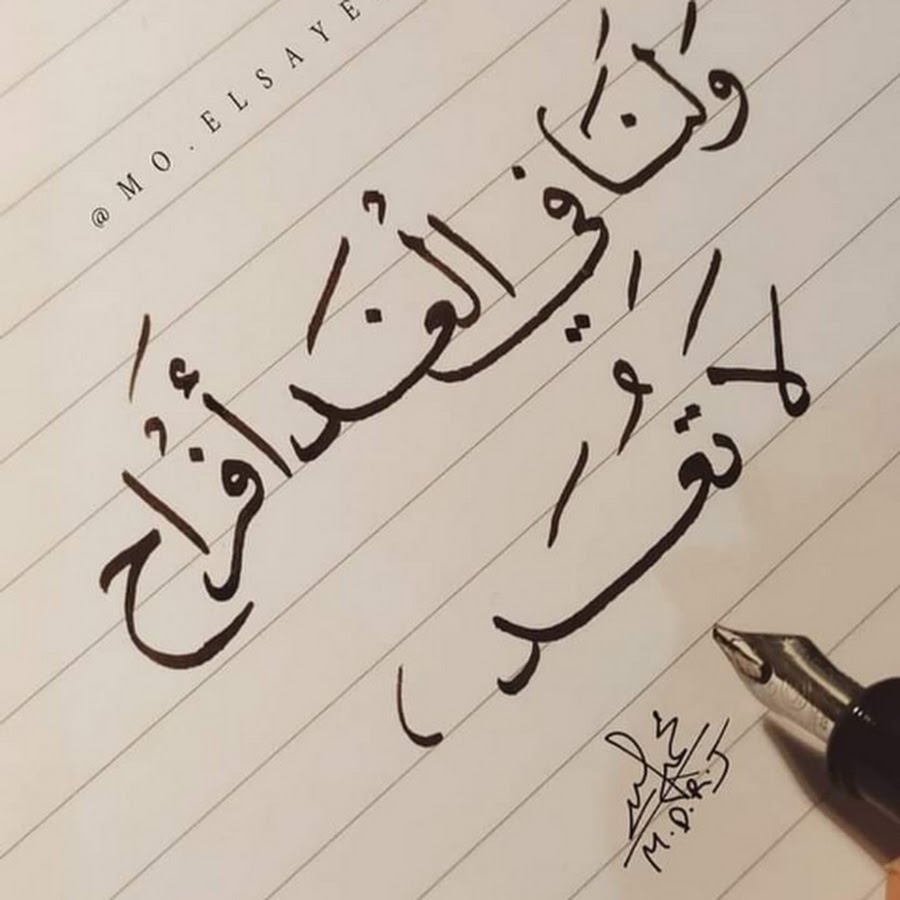 @MO.ELSAYE
وَلَنَا في الغَد أفرَاح
لَا تُعَد